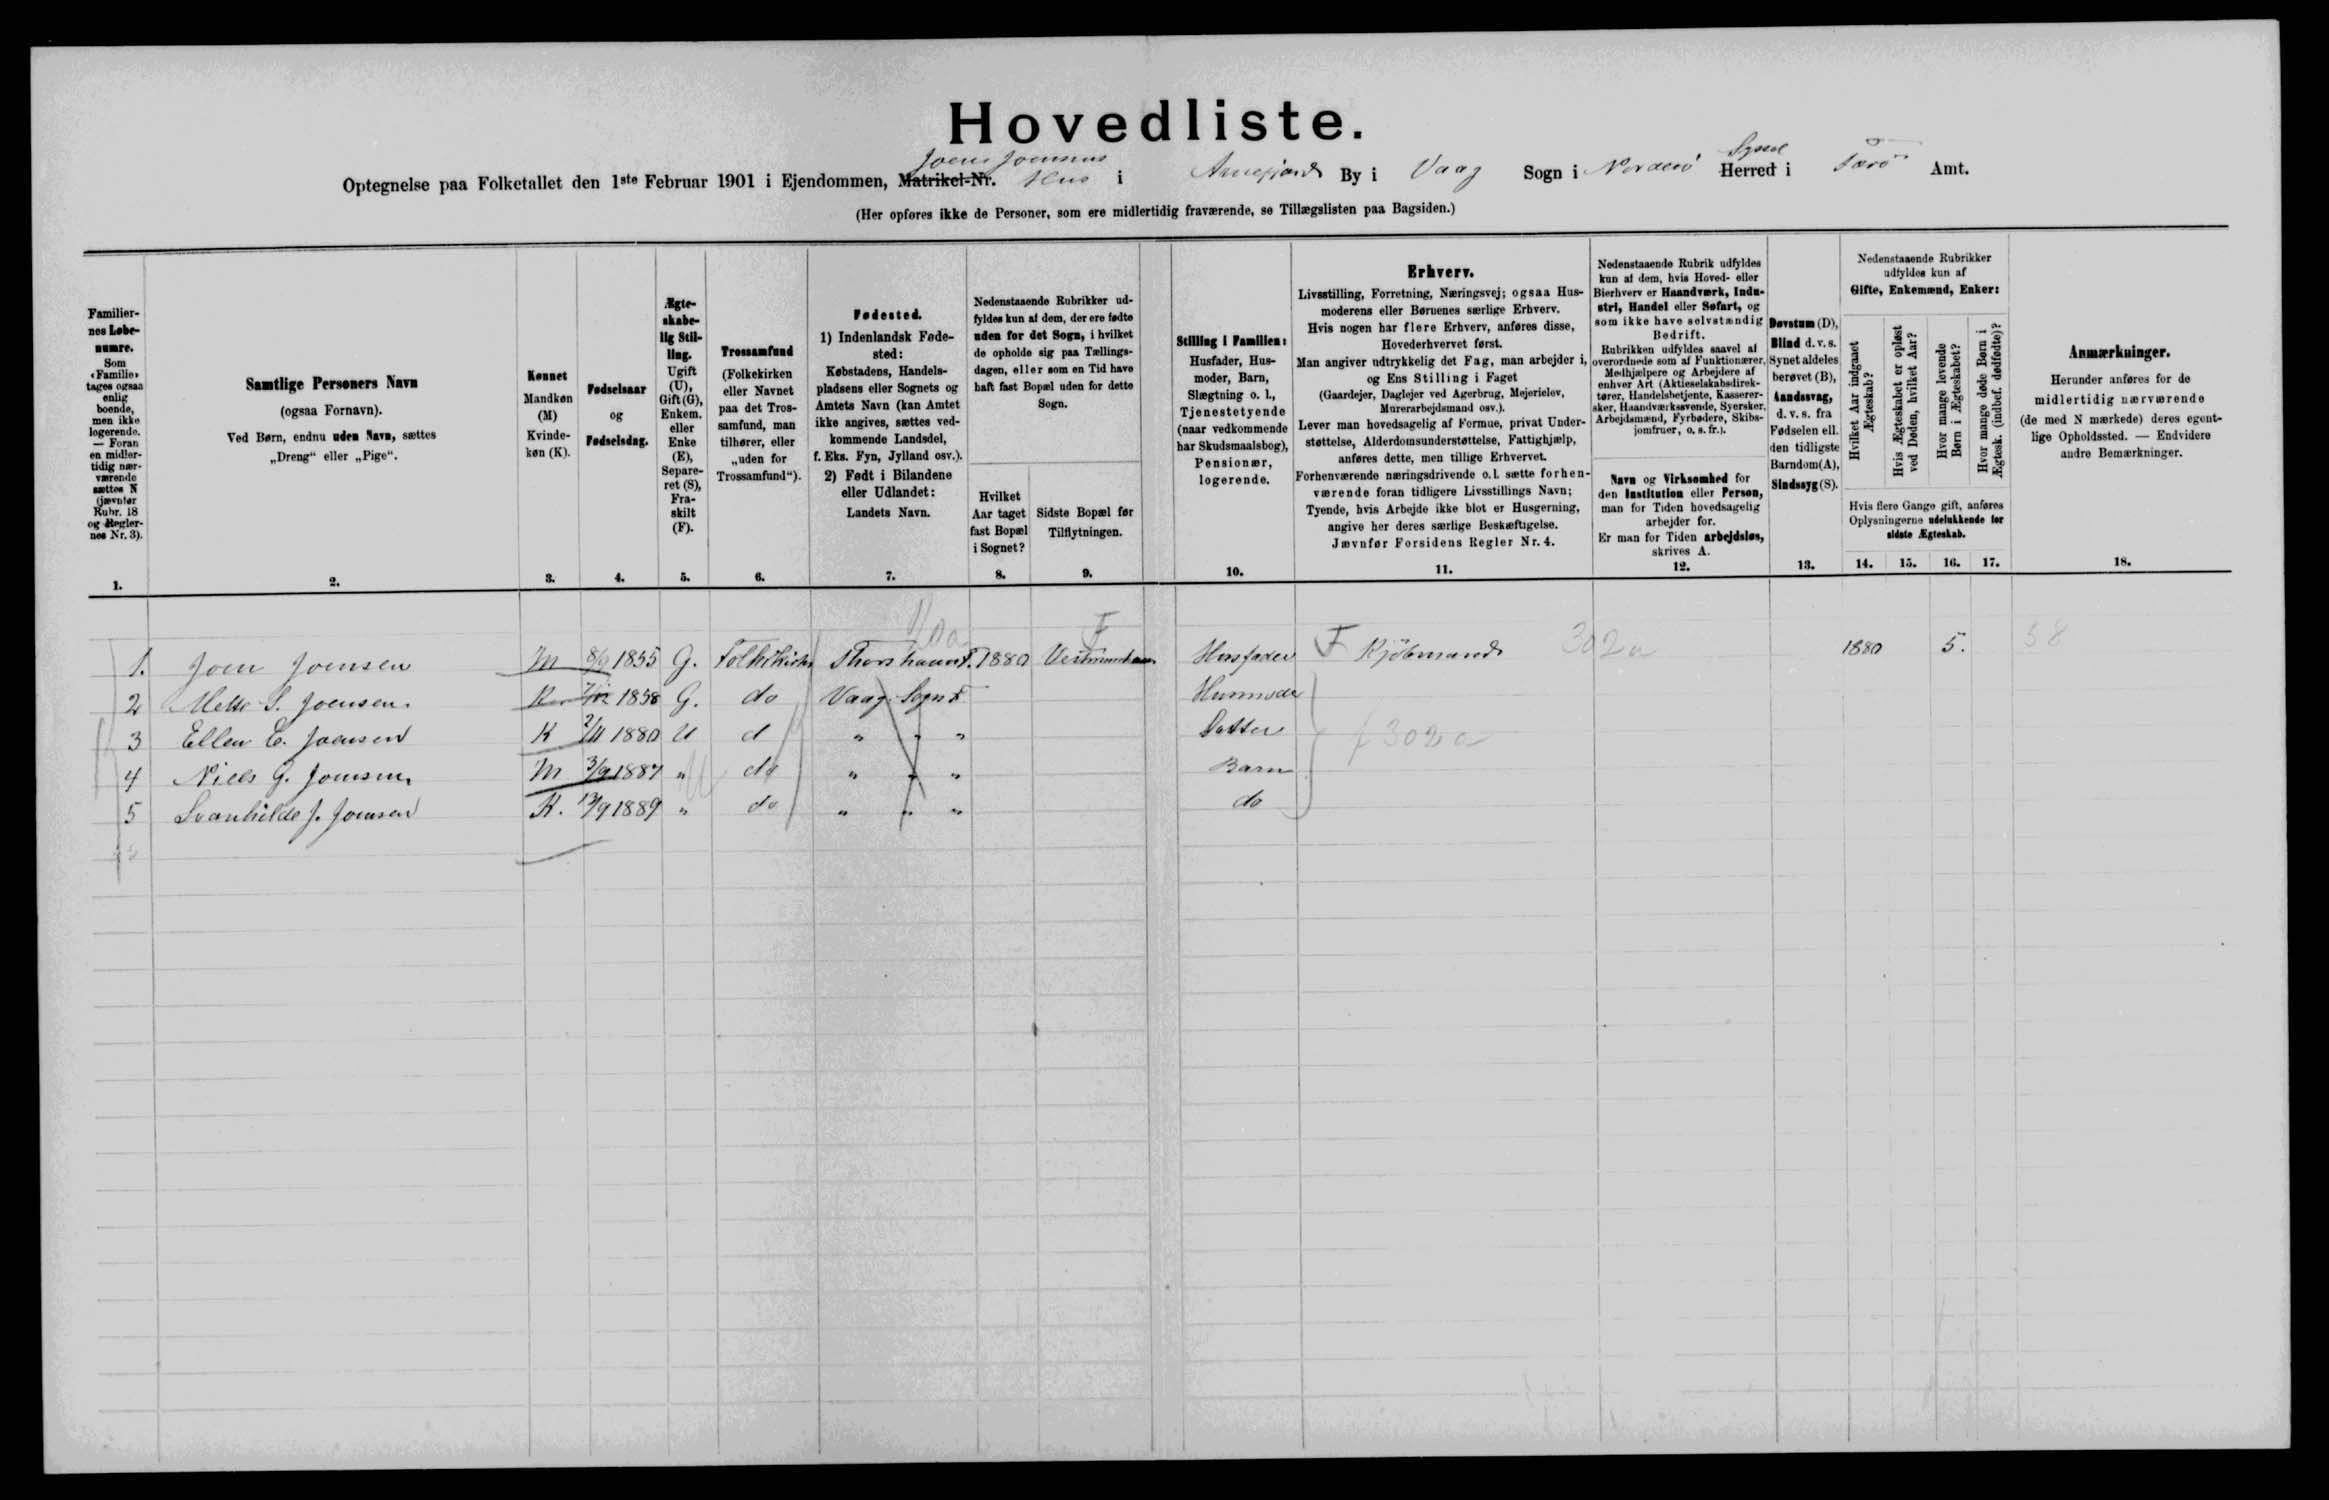 Hovedliste.
Optegnelse paa Folketallet den 1ste Februar 1901 i Ejendommen, Matrikel-Nr. Joen Joensens Hus i Arnefjord By i Vaag Sogn i Norderø Herred Syssel i Færø Amt.
(Her opføres ikke de Personer, som ere midlertidig fraværende, se Tillægslisten paa Bagsiden.)
Familiernes Løbenumre.
Som
«Familie»
tages ogsaa
enlig
boende,
men ikke
logerende.
— Foran
en midler-
tidig nær-
værende
sættes N
(jævnfør
Rubr. 18
og Regler-
nes Nr. 3).
1.
Samtlige Personers Navn
(ogsaa Fornavn).
Ved Børn, endnu uden Navn, sættes
„Dreng“ eller „Pige“.
2.
Kønnet
Mandkøn
(M)
Kvinde-
køn (K).
3.
Fødselsaar
og
Fødselsdag.
4.
Ægte-
skabe-
lig Stil-
ling.
Ugift
(U),
Gift (G),
Enkem.
eller
Enke
(E),
Separe-
ret (S),
Fra-
skilt
(F).
5.
Trossamfund
(Folkekirken
eller Navnet
paa det Tros-
samfund, man
tilhører, eller
„uden for
Trossamfund“).
6.
Fødested.
1) Indenlandsk Føde-
sted:
Købstadens, Handels-
pladsens eller Sognets og
Amtets Navn (kan Amtet
ikke angives, sættes ved-
kommende Landsdel,
f. Eks. Fyn, Jylland osv.).
2) Født i Bilandene
eller Udlandet:
Landets Navn.
7.
Nedenstaaende Rubrikker ud-
fyldes kun af dem, der ere fødte
uden for det Sogn, i hvilket
de opholde sig paa Tællings-
dagen, eller som en Tid have
haft fast Bopæl uden for dette
Sogn.
Hvilket
Aar taget
fast Bopæl
i Sognet?
8.
Sidste Bopæl før
Tilflytningen.
9.
Stilling i Familien:
Husfader, Hus-
moder, Barn,
Slægtning o. l.,
Tjenestetyende
(naar vedkommende
har Skudsmaalsbog),
Pensionær,
logerende.
10.
Erhverv.
Livsstilling, Forretning, Næringsvej; ogsaa Hus-
moderens eller Børnenes særlige Erhverv.
Hvis nogen har flere Erhverv, anføres disse,
Hovederhvervet først.
Man angiver udtrykkelig det Fag, man arbejder i,
og Ens Stilling i Faget
(Gaardejer, Daglejer ved Agerbrug, Mejerielev,
Murerarbejdsmand osv.).
Lever man hovedsagelig af Formue, privat Under-
støttelse, Alderdomsunderstøttelse, Fattighjælp,
anføres dette, men tillige Erhvervet.
Forhenværende næringsdrivende o. l. sætte forhen-
værende foran tidligere Livsstillings Navn;
Tyende, hvis Arbejde ikke blot er Husgerning,
angive her deres særlige Beskæftigelse.
Jævnfør Forsidens Regler Nr. 4.
11.
Nedenstaaende Rubrik udfyldes
kun af dem, hvis Hoved- eller
Bierhverv er Haandværk, Indu-
stri, Handel eller Søfart, og
som ikke have selvstændig
Bedrift.
Rubrikken udfyldes saavel af
overordnede som af Funktionærer,
Medhjælpere og Arbejdere af
enhver Art (Aktieselskabsdirek-
tører, Handelsbetjente, Kasserer-
sker, Haandværkssvende, Syersker,
Arbejdsmænd, Fyrbødere, Skibs-
jomfruer, o. s. fr.).
Navn og Virksomhed for
den Institution eller Person,
man for Tiden hovedsagelig
arbejder for.
Er man for Tiden arbejdsløs,
skrives A.
12.
Døvstum (D),
Blind d. v. s.
Synet aldeles
berøvet (B),
Aandssvag,
d. v. s. fra
Fødselen ell.
den tidligste
Barndom (A),
Sindssyg (S).
13.
Nedenstaaende Rubrikker
udfyldes kun af
Gifte, Enkemænd, Enker:
Hvilket Aar indgaaet
Ægteskab?
Hvis Ægteskabet er opløst
ved Døden, hvilket Aar?
Hvor mange levende
Børn i Ægteskabet?
Hvor mange døde Børn i
Ægtesk. (indbef. dødfødte)?
Hvis flere Gange gift, anføres
Oplysningerne udelukkende for
sidste Ægteskab.
14. 15. 16. 17.
Anmærkninger.
Herunder anføres for de
midlertidig nærværende
(de med N mærkede) deres egent-
lige Opholdssted. — Endvidere
andre Bemærkninger.
18.
1. Joen Joensen M 8/9 1855 G. Folkekirken Thorshavn F. 1880 Vestmanhavn Husfader F Kjöbmand 302a 1880 5. 58
2 Mette S. Joensen K 1858 G. do Vaag Sogn F Husmoder
3 Ellen E. Joensen K 2/11 1880 U d " " " Datter f 302a
4 Niels G. Joensen M 3/9 1887 " do " " " Barn
5 Svanhilde J. Joensen K. 13/9 1889 " do " " " do